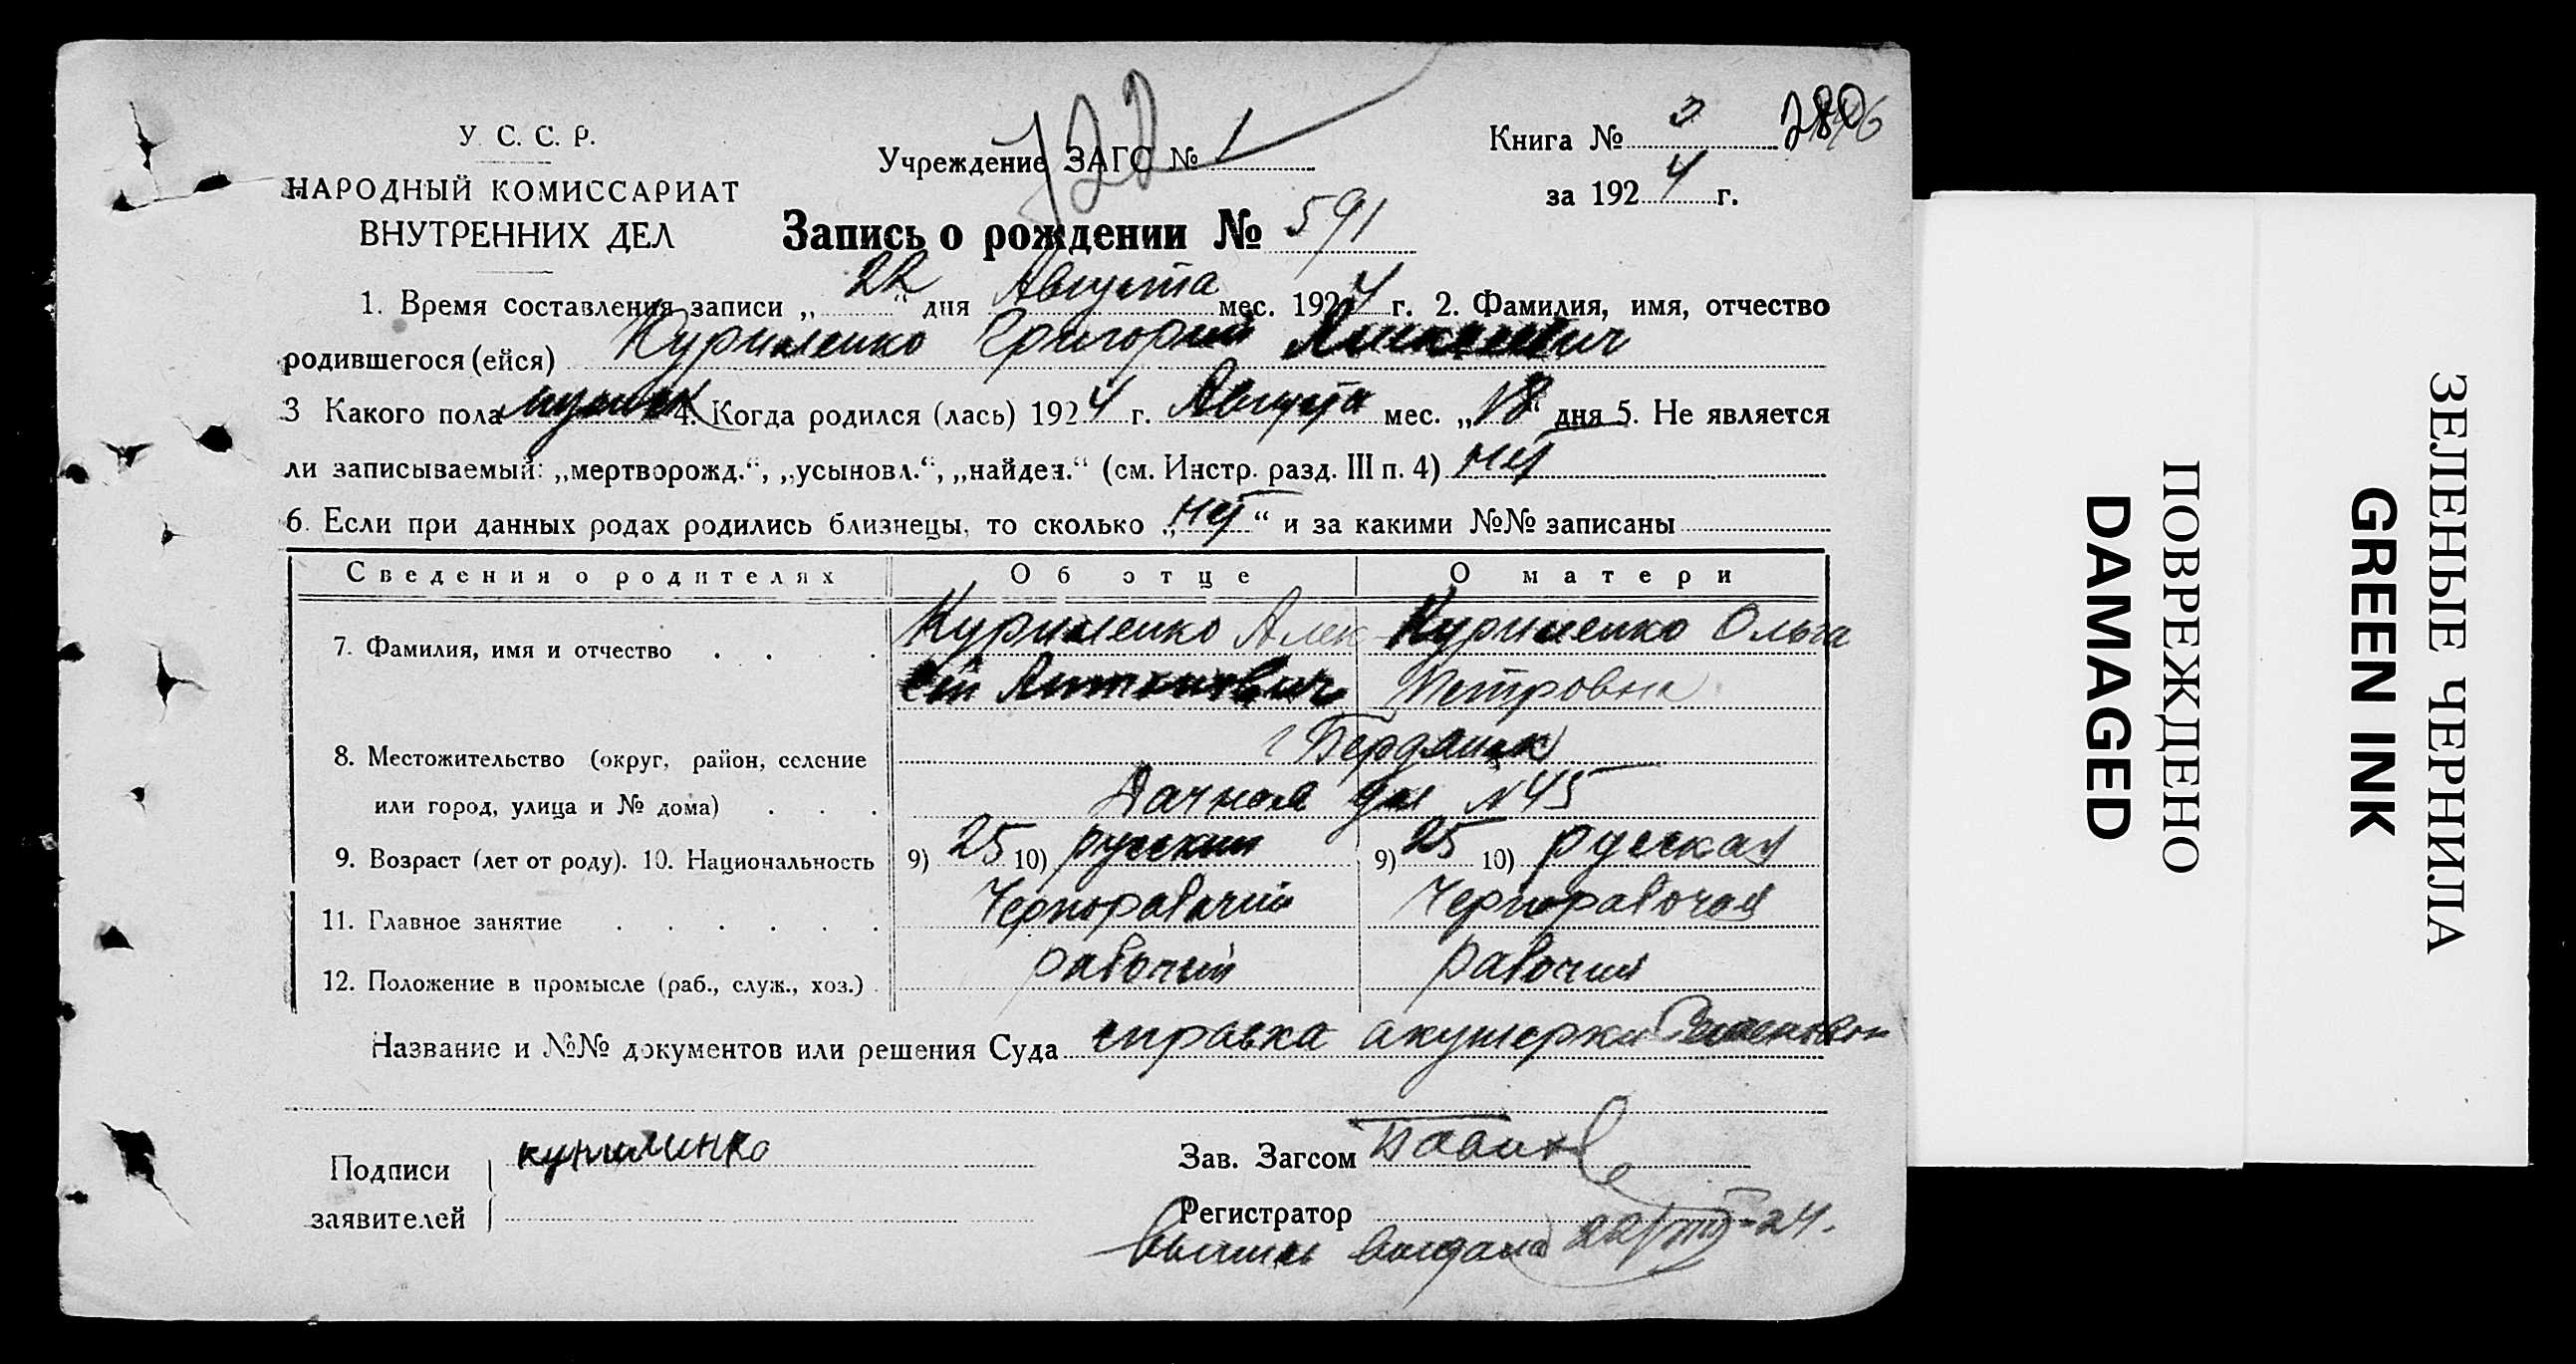 У. С. С. Р.
НАРОДНЫЙ КОМИССАРИАТ
ВНУТРЕННИХ ДЕЛ
Учреждение ЗАГС № 1
Книга № 3
за 1924 г.
Запись о рождении № 591
1. Время составления записи „22“ дня Августа мес. 1924 г. 2. Фамилия, имя, отчество
родившегося (ейся) Куриленко Григорий
3 Какого пола мужск 4. Когда родился (лась) 1924 г. Августа мес. „18“ дня 5. Не является
ли записываемый: „мертворожд.“, „усыновл.“, „найден.“ (см. Инстр. разд. III п. 4) нет
6. Если при данных родах родились близнецы, то сколько „нет“ и за какими №№ записаны
Сведения о родителях Об отце О матери
7. Фамилия, имя и отчество Куриленко Алек Куриленко Ольга
сей Петровна
8. Местожительство (округ, район, селение г Бердянск
или город, улица и № дома) Дачная ул N 45
9. Возраст (лет от роду). 10. Национальность 9) 25 10) русский 9) 25 10) русская
11. Главное занятие Чернорабочий Чернорабочая
12. Положение в промысле (раб., служ., хоз.) рабочий рабочий
Название и №№ документов или решения Суда справка акушерки
Подписи заявителей курилинко
Зав. Загсом
Регистратор
выдана 22/VIII-24.
ПОВРЕЖДЕНО
DAMAGED
ЗЕЛЕНЫЕ ЧЕРНИЛА
GREEN INK